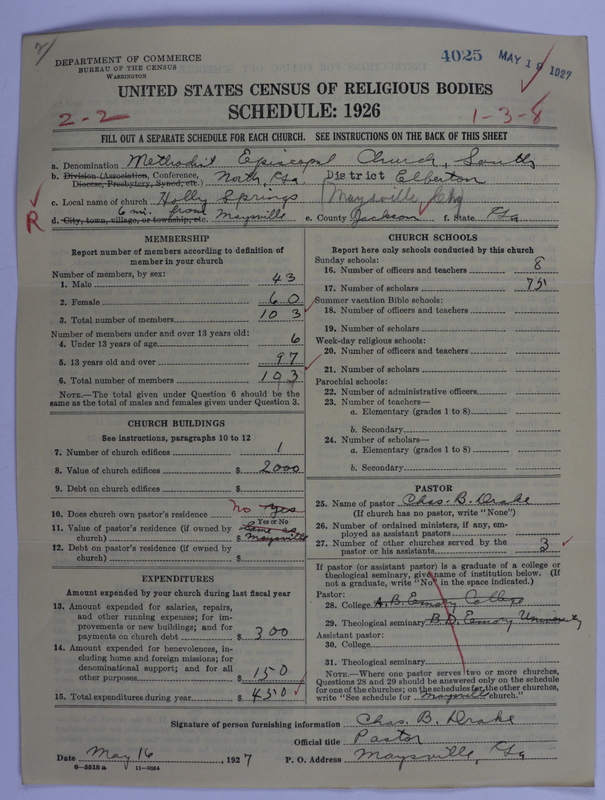 2
DEPARTMENT OF COMMERCE
BUREAU OF THE CENSUS
WASHINGTON
4025 MAY 19 1927
UNITED STATES CENSUS OF RELIGIOUS BODIES
2-2 SCHEDULE: 1926 1-3-8
FILL OUT A SEPARATE SCHEDULE FOR EACH CHURCH. SEE INSTRUCTIONS ON THE BACK OF THIS SHEET
a. Denomination Methodist Episcopal Church, South
b. Division (Association, Conference, North, Ga District Elberton
Diocese, Presbytery, Synod, etc.)
c. Local name of church Holly Springs Maysville, Chg
R 6 mi. from Maysville
d. City, town, village, or township, etc. e. County Jackson f. State Ga
MEMBERSHIP
Report number of members according to definition of
member in your church
Number of members, by sex:
1. Male 43
2. Female 60
3. Total number of members 103
Number of members under and over 13 years old:
4. Under 13 years of age 6
5. 13 years old and over 97
6. Total number of members 103
NOTE.—The total given under Question 6 should be the
same as the total of males and females given under Question 3.
CHURCH BUILDINGS
See instructions, paragraphs 10 to 12
7. Number of church edifices 1
8. Value of church edifices $ 2000
9. Debt on church edifices $
10. Does church own pastor's residence No yes
Yes or No
11. Value of pastor's residence (if owned by Same as
church) $ Maysville
12. Debt on pastor's residence (if owned by
church) $
EXPENDITURES
Amount expended by your church during last fiscal year
13. Amount expended for salaries, repairs,
and other running expenses; for im-
provements or new buildings; and for
payments on church debt $ 300
14. Amount expended for benevolences, in-
cluding home and foreign missions; for
denominational support; and for all
other purposes $ 150
15. Total expenditures during year $ 450
CHURCH SCHOOLS
Report here only schools conducted by this church
Sunday schools:
16. Number of officers and teachers 8
17. Number of scholars 75
Summer vacation Bible schools:
18. Number of officers and teachers
19. Number of scholars
Week-day religious schools:
20. Number of officers and teachers
21. Number of scholars
Parochial schools:
22. Number of administrative officers
23. Number of teachers—
a. Elementary (grades 1 to 8)
b. Secondary
24. Number of scholars—
a. Elementary (grades 1 to 8)
b. Secondary
PASTOR
25. Name of pastor Chas. B. Drake
(If church has no pastor, write "None")
26. Number of ordained ministers, if any, em-
ployed as assistant pastors
27. Number of other churches served by the
pastor or his assistants 3
If pastor (or assistant pastor) is a graduate of a college or
theological seminary, give name of institution below. (If
not a graduate, write "No" in the space indicated.)
Pastor:
28. College A.B. Emory College
29. Theological seminary B.D. Emory University
Assistant pastor:
30. College
31. Theological seminary
NOTE.—Where one pastor serves two or more churches,
Questions 28 and 29 should be answered only on the schedule
for one of the churches; on the schedules for the other churches,
write "See schedule for Maysville church."
Signature of person furnishing information Chas. B. Drake
Official title Pastor
Date May 16, 1927 P. O. Address Maysville, Ga
8—5818 a 11—9054